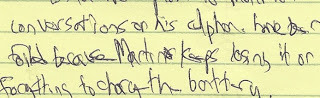 conversations on his cellphone have been
foiled because Martin keeps losing it or
forgetting to charge the battery.